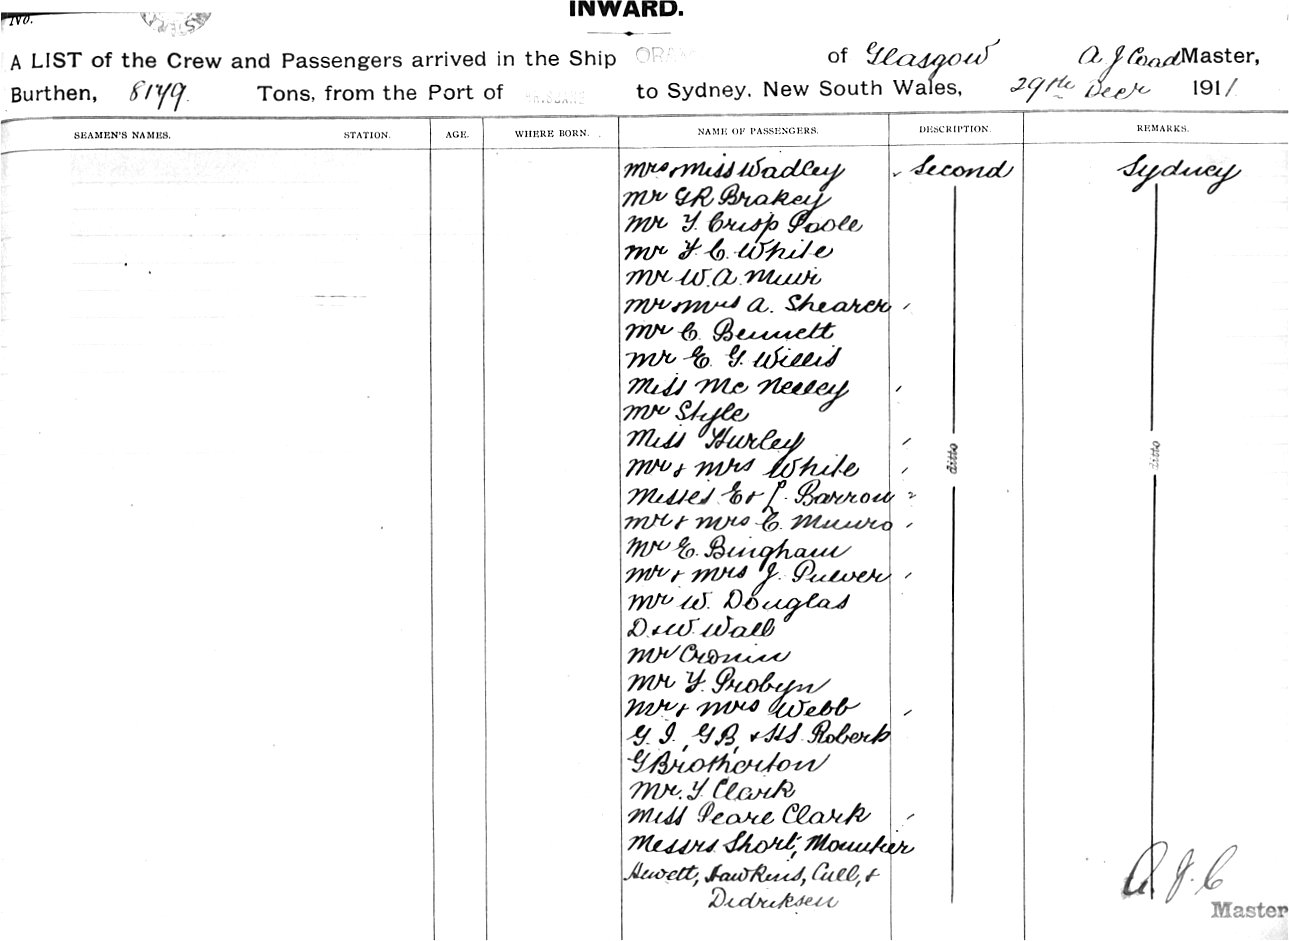 INWARD.
No.
A LIST of the Crew and Passengers arrived in the Ship of Glasgow A J Coad Master,
Burthen, 8179 Tons, from the Port of BRISBANE to Sydney, New South Wales, 29th Decr 1911
SEAMEN'S NAMES. STATION. AGE. WHERE BORN. NAME OF PASSENGERS. DESCRIPTION. REMARKS.
Mrs & Miss Wadley Second Sydney
Mr GR Brakey
Mr F. Crisp Poole
Mr F. C. White
Mr W. A. Muir
Mr & Mrs A. Shearer
Mr C. Bennett
Mr E. G. Willis
Miss Mc Neeley
Mr Style
Miss Hurley
ditto ditto
Mr & Mrs White
Misses E & L. Barrow
Mr & Mrs C. Munro
Mr E. Bingham
Mr & Mrs J. Pulver
Mr W. Douglas
D & W. Wall
Mr Cronin
Mr F. Probyn
Mr & Mrs Webb
G. I, GB, & HS. Roberts
G Brotherton
Mr. F. Clark
Miss Pearl Clark
Messrs Short,
Hewett, Hawkins, Cull, &
Didriksen
A. J. C
Master